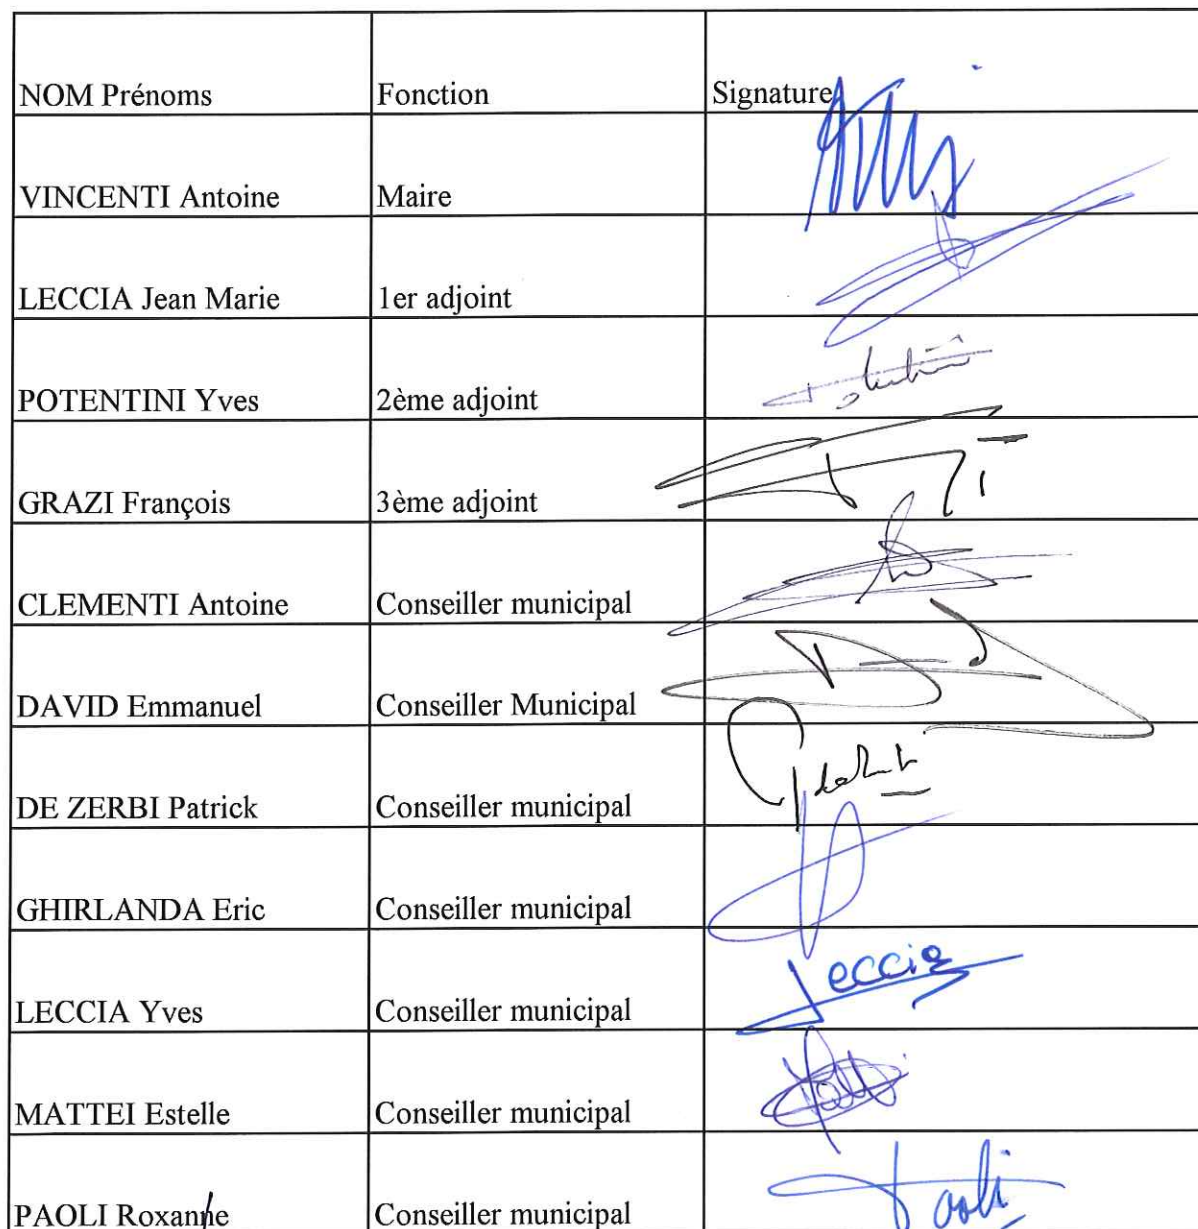 NOM Prénoms Fonction Signature
VINCENTI Antoine Maire
LECCIA Jean Marie 1er adjoint
POTENTINI Yves 2ème adjoint
GRAZI François 3ème adjoint
CLEMENTI Antoine Conseiller municipal
DAVID Emmanuel Conseiller Municipal
DE ZERBI Patrick Conseiller municipal
GHIRLANDA Eric Conseiller municipal
LECCIA Yves Conseiller municipal Leccia
MATTEI Estelle Conseiller municipal
PAOLI Roxanne Conseiller municipal Paoli